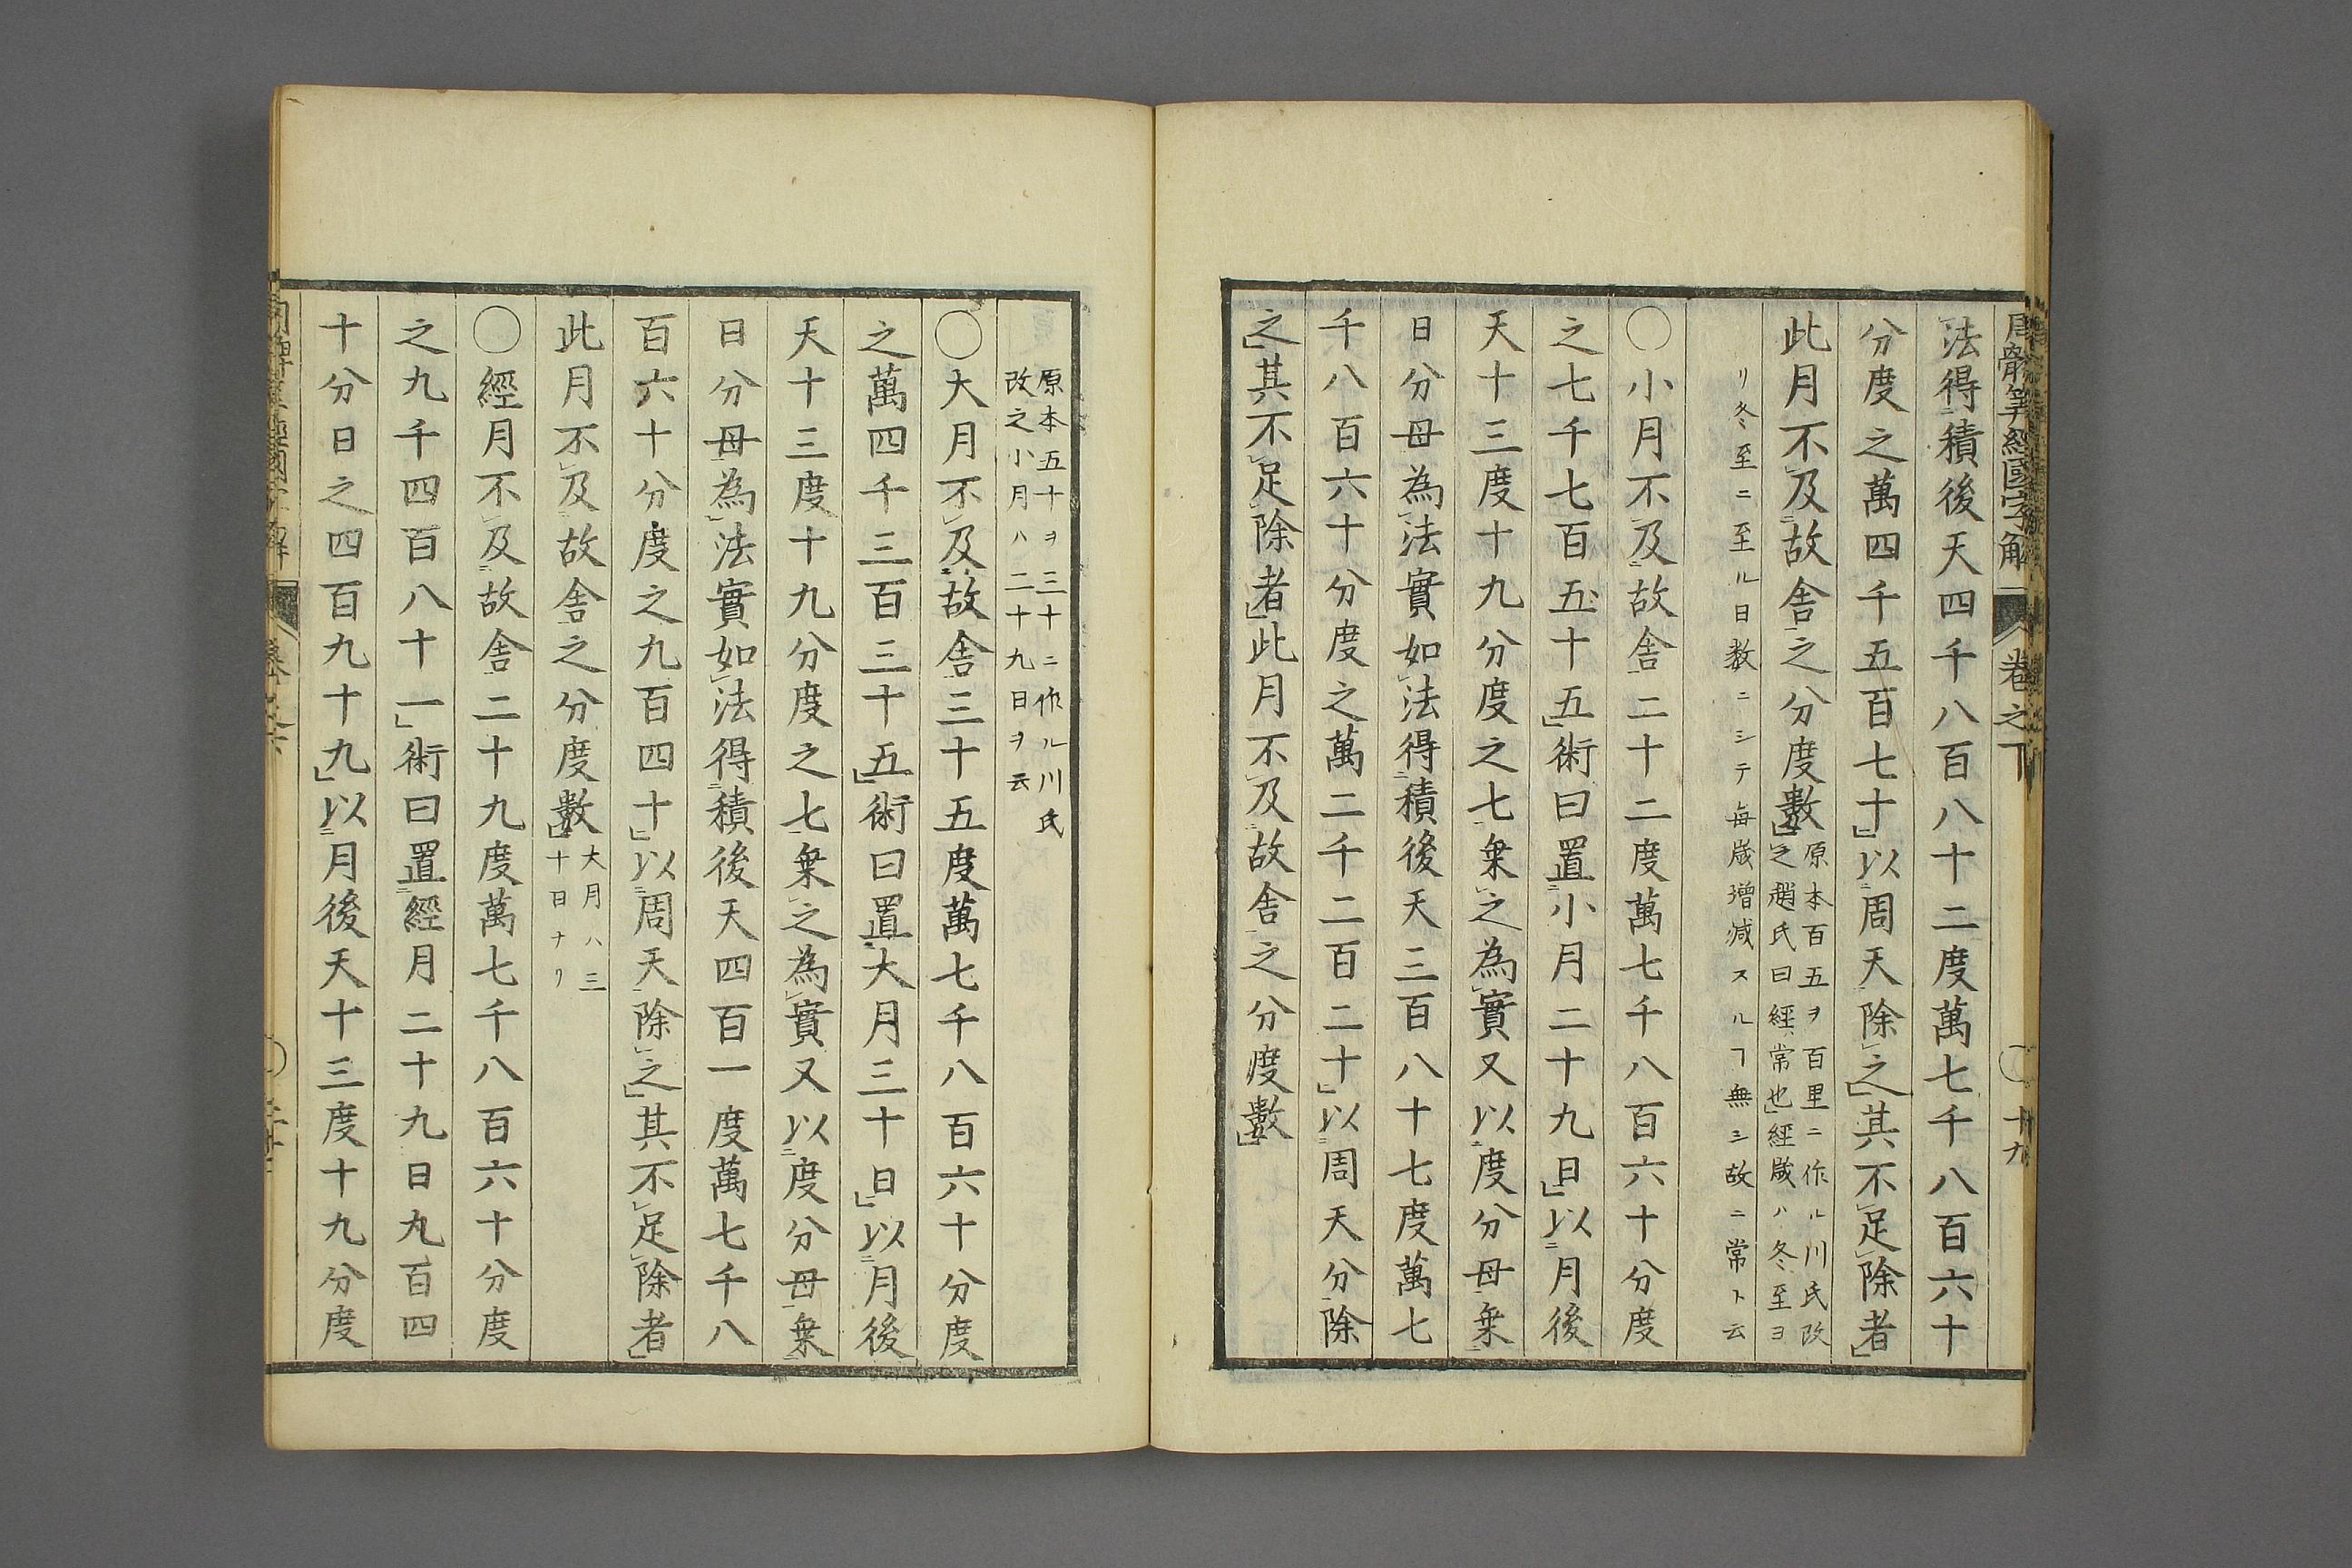 周髀算經國字解 卷之下 〇十九
法得積後天四千八百八十二度萬七千八百六十
分度之萬四千五百七十」以周天除之」其不足除者」
此月不及故舍之分度數」原本百五ヲ百里ニ作ル川氏改
之趙氏曰經常也」經歳ハ冬至ヨ
リ冬至ニ至ル日数ニシテ毎歳增減スルヿ無シ故ニ常ト云
〇小月不及故舍二十二度萬七千八百六十分度
之七千七百五十五」術曰置小月二十九日」以月後
天十三度十九分度之七乗之為實又以度分母乗
日分母為法實如法得積後天三百八十七度萬七
千八百六十分度之萬二千二百二十」以周天分除
之」其不足除者」此月不及故舍之分度數」
原本五十ヲ三十ニ作ル川氏
改之小月ハ二十九日ヲ云
〇大月不及故舍三十五度萬七千八百六十分度
之萬四千三百三十五」術曰置大月三十日」以月後
天十三度十九分度之七乗之為實又以度分母乗
日分母為法實如法得積後天四百一度萬七千八
百六十分度之九百四十」以周天除之」其不足除者」
此月不及故舍之分度數」大月ハ三
十日ナリ
〇經月不及故舍二十九度萬七千八百六十分度
之九千四百八十一」術曰置經月二十九日九百四
十分日之四百九十九」以月後天十三度十九分度